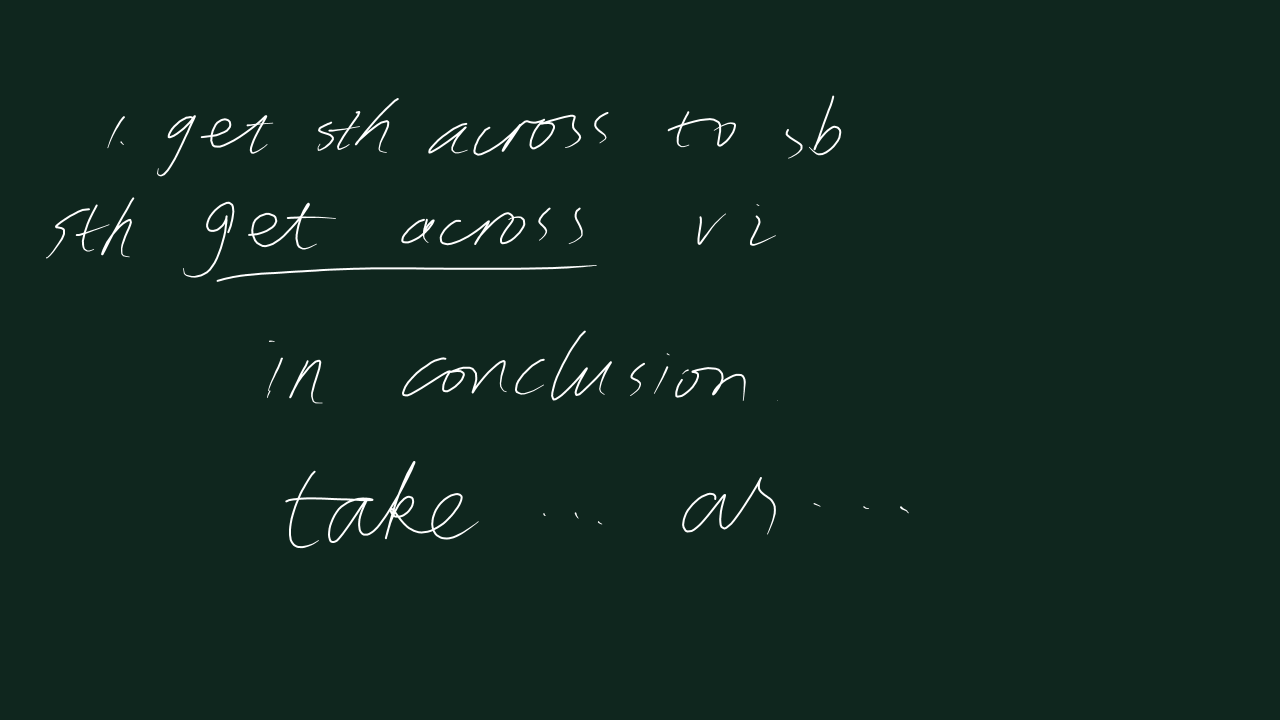 1. get sth across to sb
sth get across vi
in conclusion
take ... as ...